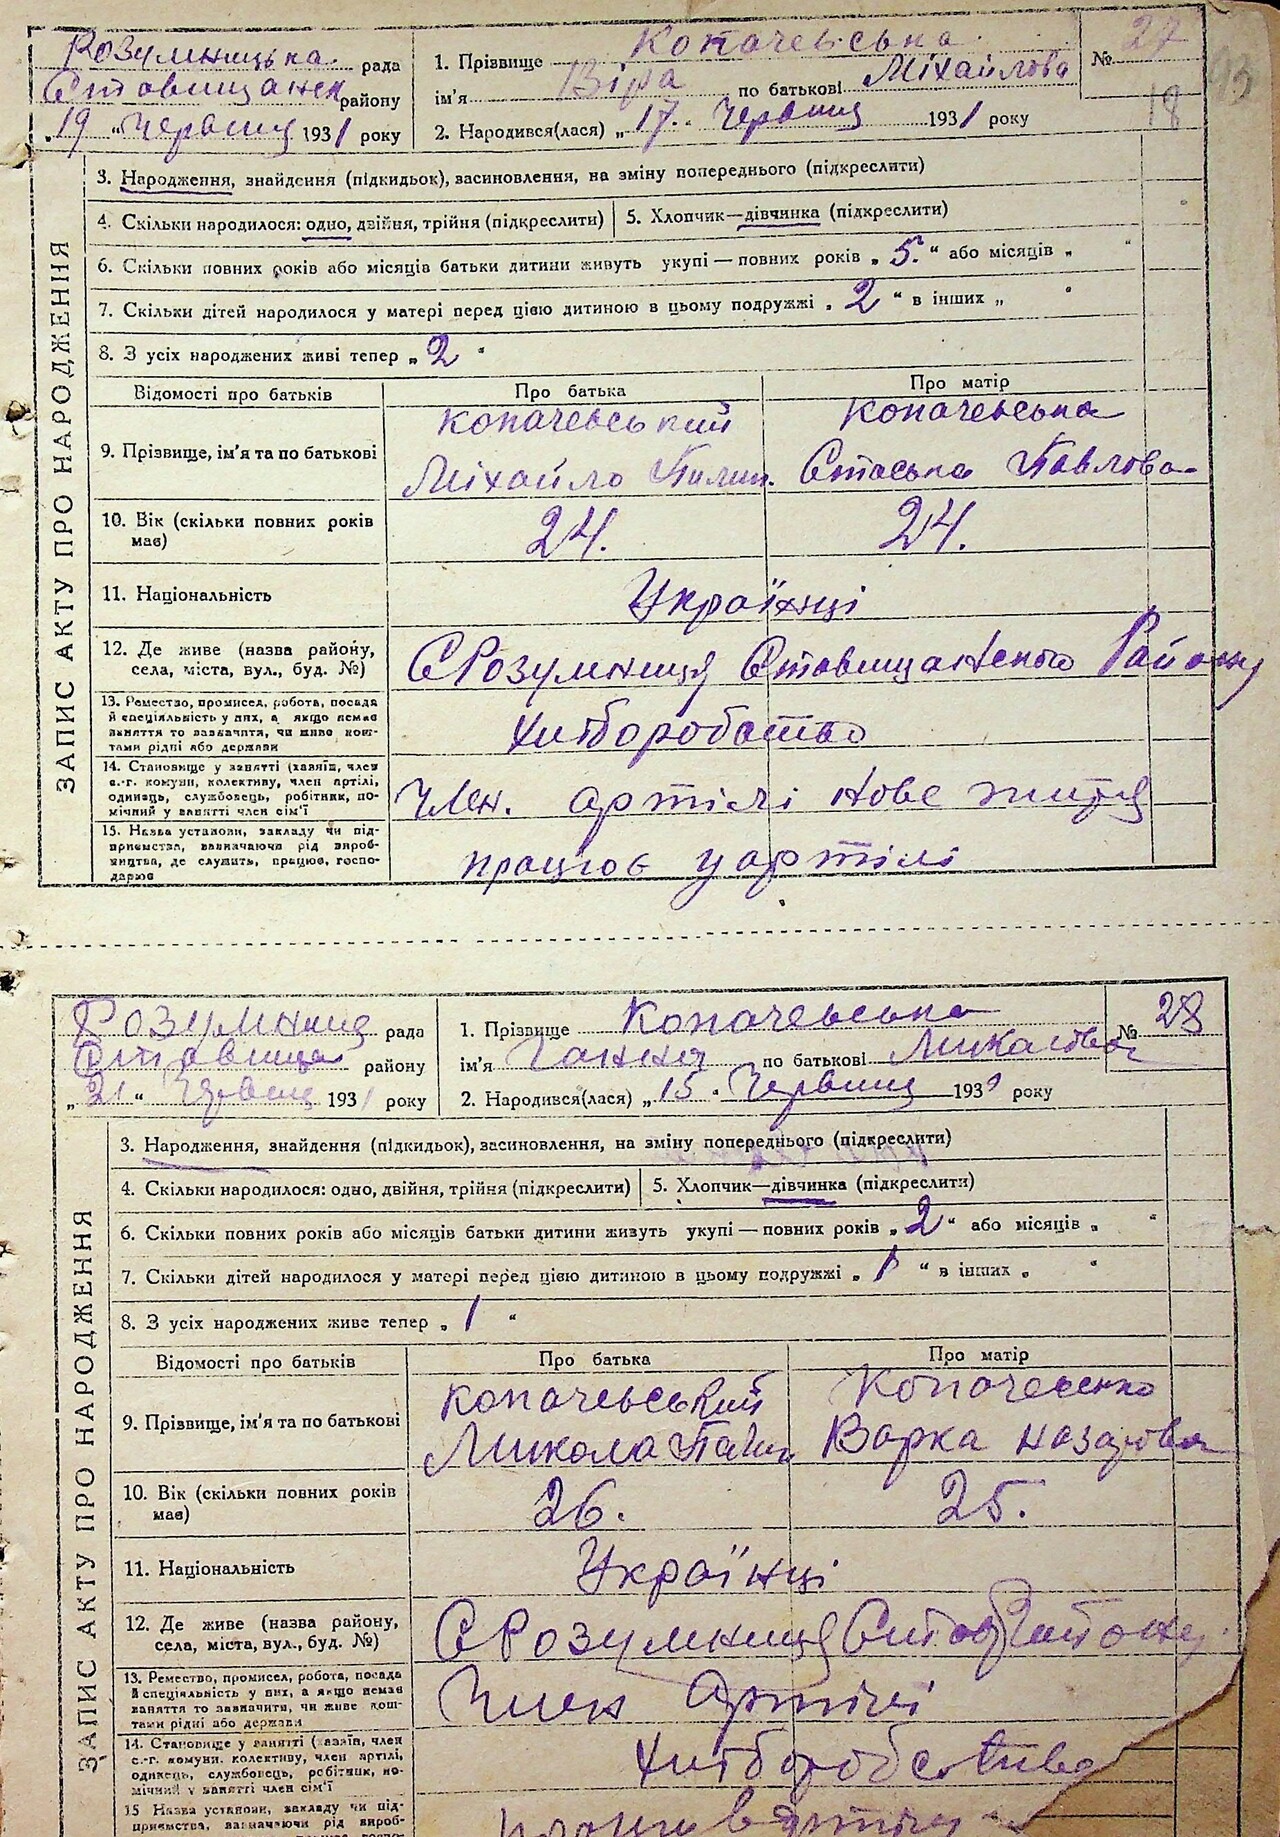 Розумницька рада
Ставищанськ району
„19“ Червня 1931 року
1. Прізвище Копачевська
ім'я Віра по батькові Міхайлова
2. Народився(лася) „17“ Червня 1931 року
№ 27
18
93
ЗАПИС АКТУ ПРО НАРОДЖЕННЯ
3. Народження, знайдення (підкидьок), засиновлення, на зміну попереднього (підкреслити)
4. Скільки народилося: одно, двійня, трійня (підкреслити) 5. Хлопчик—дівчинка (підкреслити)
6. Скільки повних років або місяців батьки дитини живуть укупі — повних років „5.“ або місяців „ “
7. Скільки дітей народилося у матері перед цією дитиною в цьому подружжі „2“ в інших „ “
8. З усіх народжених живі тепер „2“
Відомості про батьків Про батька Про матір
9. Прізвище, ім'я та по батькові Копачевський Копачевська
Міхайло Пилип. Стаська Павлова
10. Вік (скільки повних років має) 24. 24.
11. Національність Українці
12. Де живе (назва району,
села, міста, вул., буд. №) С Розумниця Ставищанського Району
13. Ремество, промисел, робота, посада
й спеціяльність у них, а якщо немає
заняття то зазначити, чи живе кош-
тами рідні або держави
Хліборобство
14. Становище у занятті (хазяїн, член
с.-г. комуни, колективу, член артілі,
одинець, службовець, робітник, по-
мічний у занятті член сім'ї
Член. артілі нове життя
15. Назва установи, закладу чи під-
приємства, зазначаючи рід вироб-
ництва, де служить, працює, госпо-
дарює
працює у артілі
Розумниц рада
Ставище району
„21“ Червня 1931 року
1. Прізвище Копачевська
ім'я Ганна по батькові Миколова
2. Народився(лася) „15“ Червня 193 року
№ 28
ЗАПИС АКТУ ПРО НАРОДЖЕННЯ
3. Народження, знайдення (підкидьок), засиновлення, на зміну попереднього (підкреслити)
4. Скільки народилося: одно, двійня, трійня (підкреслити) 5. Хлопчик—дівчинка (підкреслити)
6. Скільки повних років або місяців батьки дитини живуть укупі — повних років „2“ або місяців „ “
7. Скільки дітей народилося у матері перед цією дитиною в цьому подружжі „1“ в інших „ “
8. З усіх народжених живе тепер „1“
Відомості про батьків Про батька Про матір
9. Прізвище, ім'я та по батькові Копачевський
Микола Варка Назарова
10. Вік (скільки повних років має) 26. 25.
11. Національність Українці
12. Де живе (назва району,
села, міста, вул., буд. №) С Розумниця Став Району
13. Ремество, промисел, робота, посада
й спеціяльність у них, а якщо немає
заняття то зазначити, чи живе кош-
тами рідні або держави
Член артілі
14. Становище у занятті (хазяїн, член
с.-г. комуни, колективу, член артілі,
одинець, службовець, робітник, по-
мічний у занятті член сім'ї
Хліборобство
15 Назва установи, закладу чи під-
приємства, зазначаючи рід вироб-